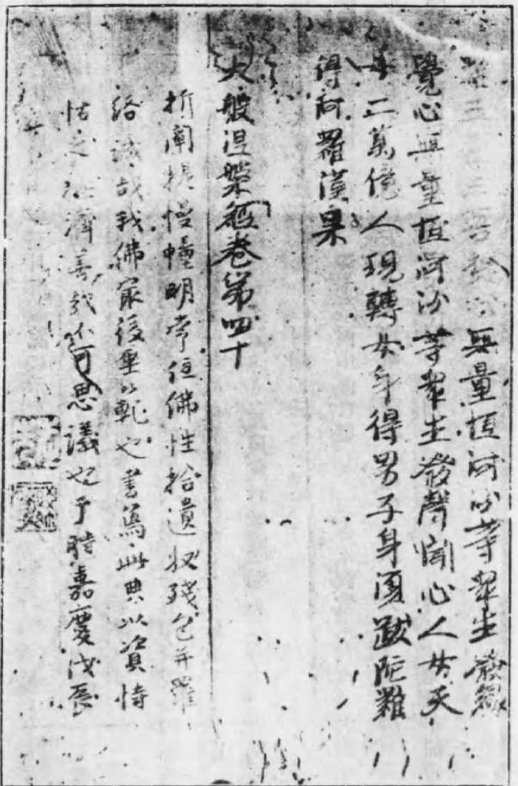 羅三藐三菩提心無量恒河沙等衆生發緣
覺心無量恒河沙等衆生發聲聞心人女天
女二萬億人現轉女身得男子身須跋陀難
得阿羅漢果
大般涅槃經卷第四十
折闡提慢幢明常住佛性拾遺收殘包并羅
絡誠哉我佛最後垂範也書寫此典以資恃
怙之 濟善哉不可思議也于時嘉慶戊辰